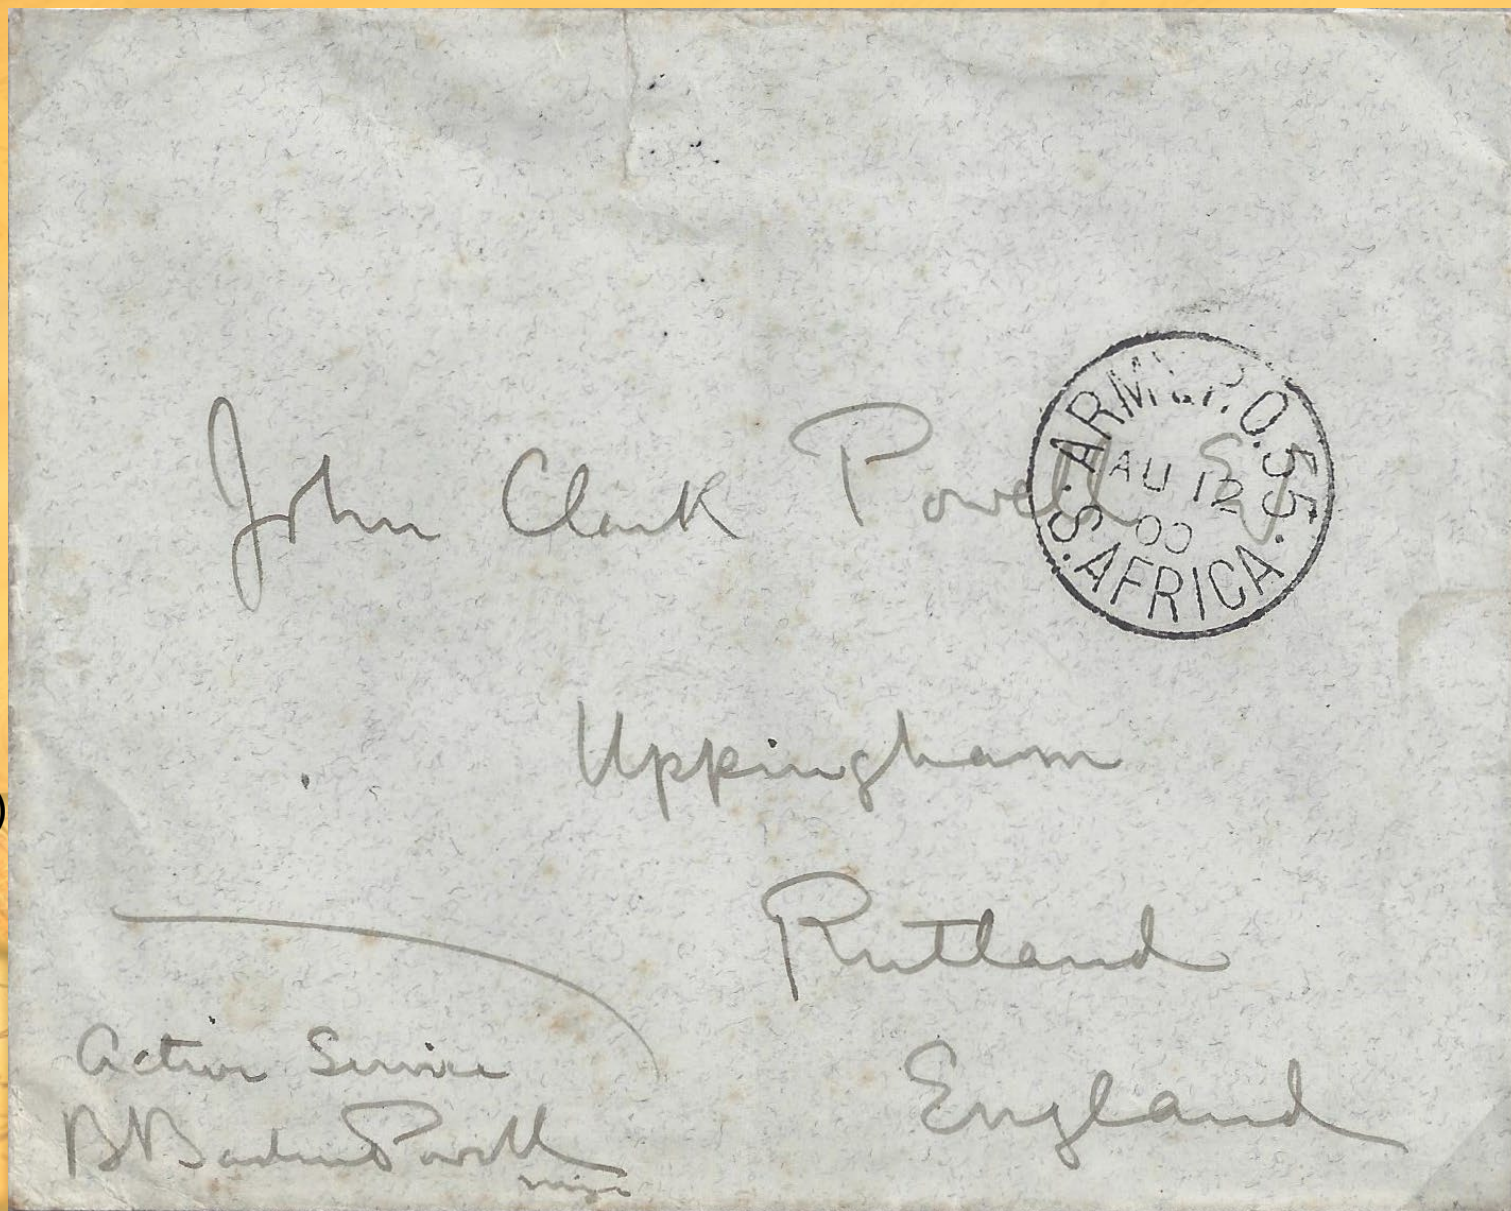 John Clark Powell Esq
ARMY P.O. 55.
AU 12
00
S. AFRICA.
Uppingham
Rutland
England
Active Service
B Baden Powell
)